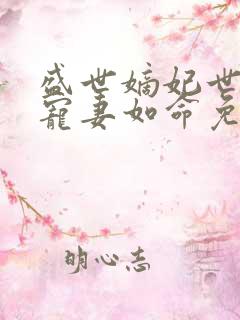 盛世嫡妃世
宠妻如命免
明心志